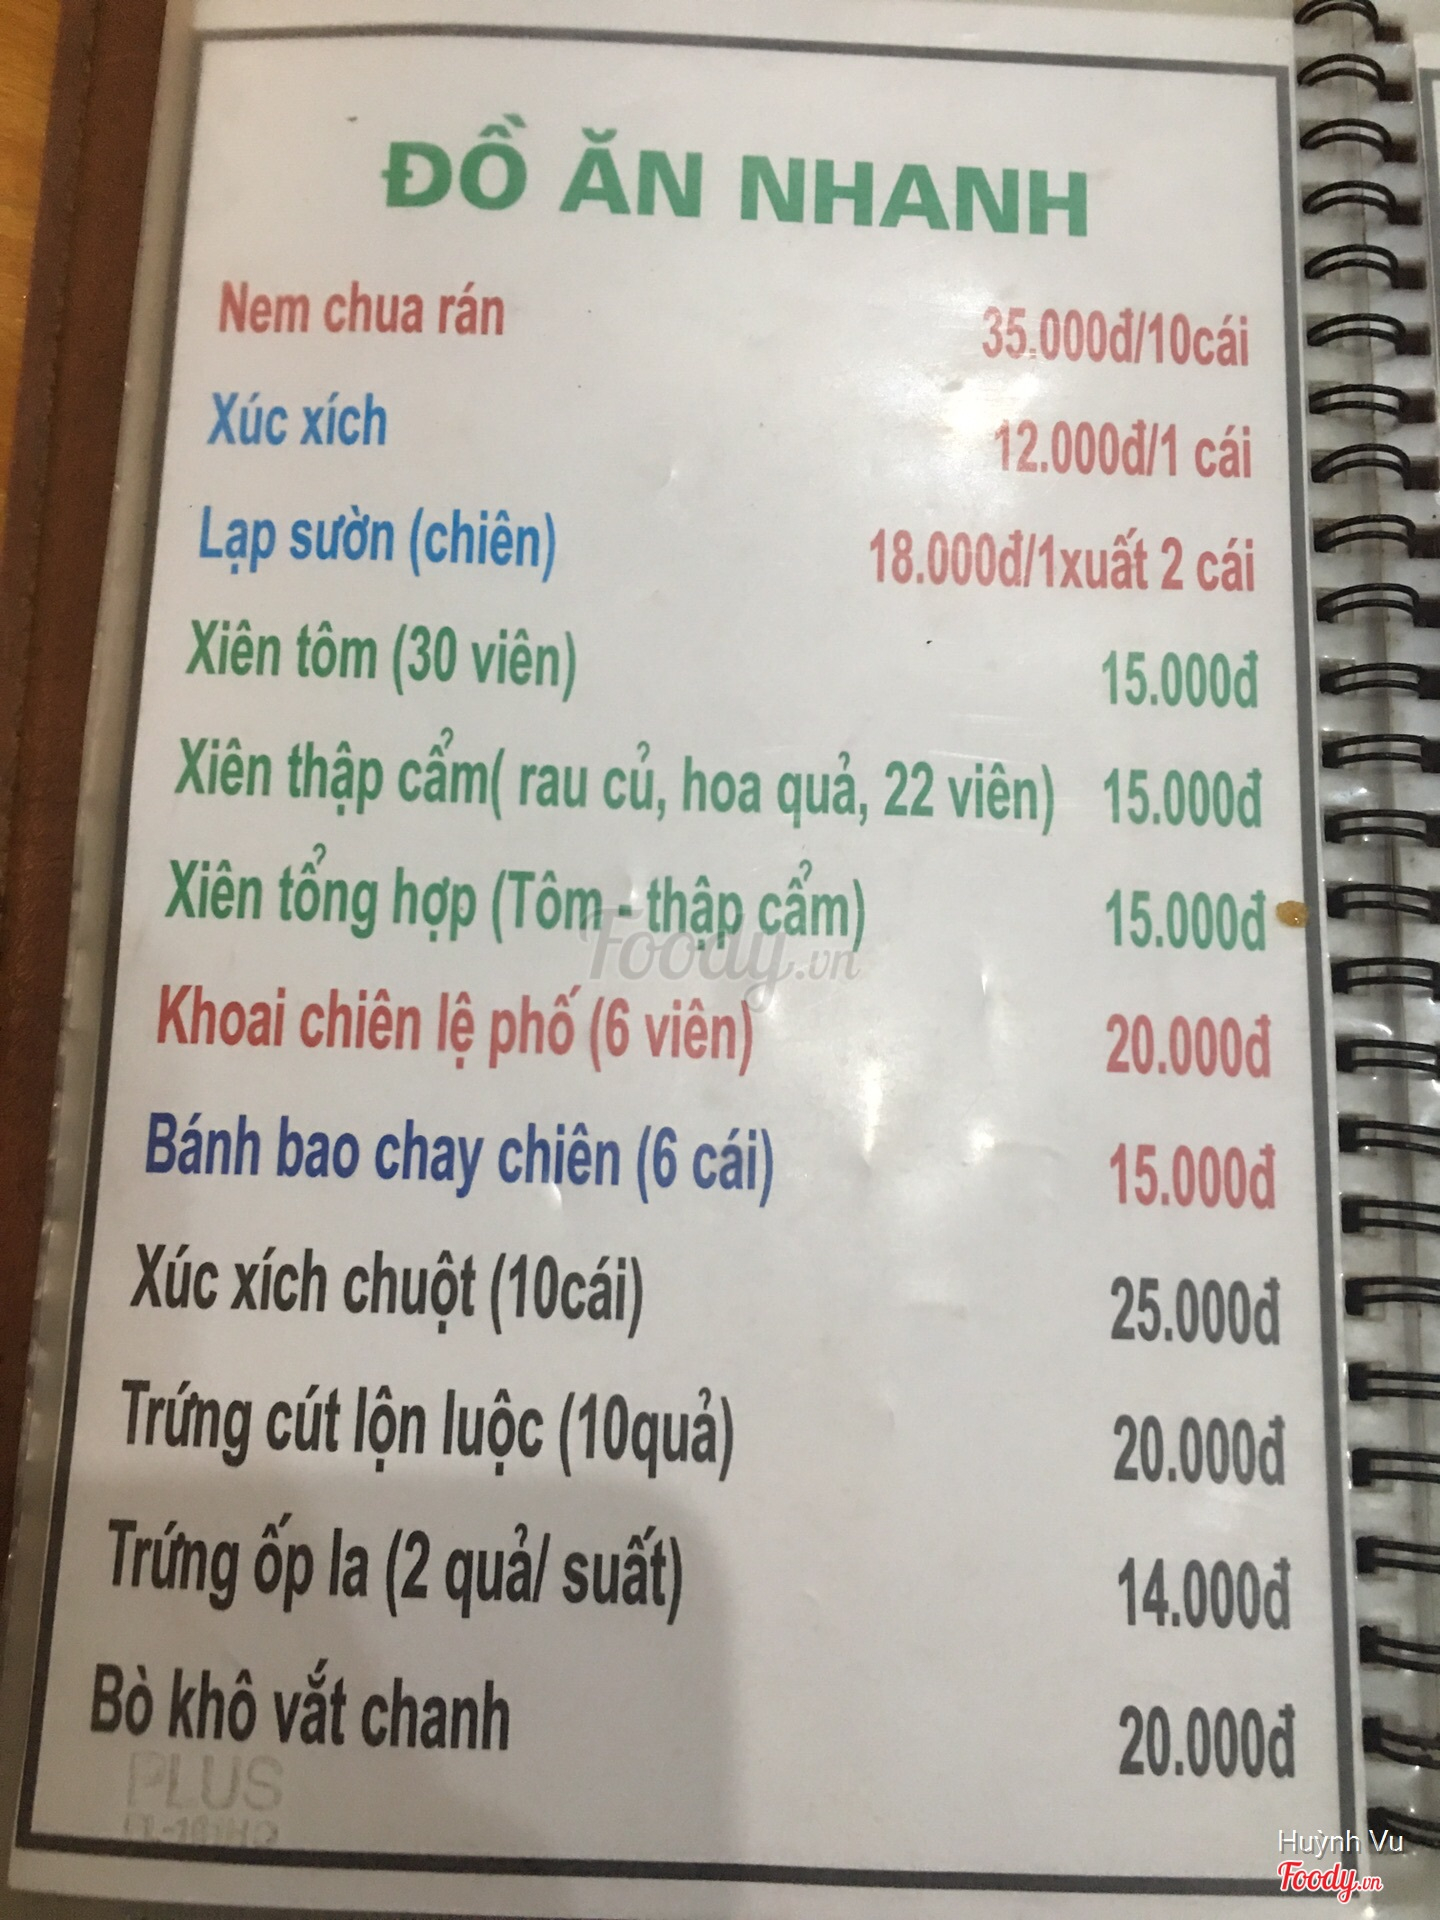 ĐỒ ĂN NHANH
Nem chua rán 35.000đ/10cái
Xúc xích 12.000đ/1 cái
Lạp sườn (chiên) 18.000đ/1xuất 2 cái
Xiên tôm (30 viên) 15.000đ
Xiên thập cẩm( rau củ, hoa quả, 22 viên) 15.000đ
Xiên tổng hợp (Tôm - thập cẩm) 15.000đ
Foody.vn
Khoai chiên lệ phố (6 viên) 20.000đ
Bánh bao chay chiên (6 cái) 15.000đ
Xúc xích chuột (10cái) 25.000đ
Trứng cút lộn luộc (10quả) 20.000đ
Trứng ốp la (2 quả/ suất) 14.000đ
Bò khô vắt chanh 20.000đ
PLUS
Huỳnh Vu
Foody.vn